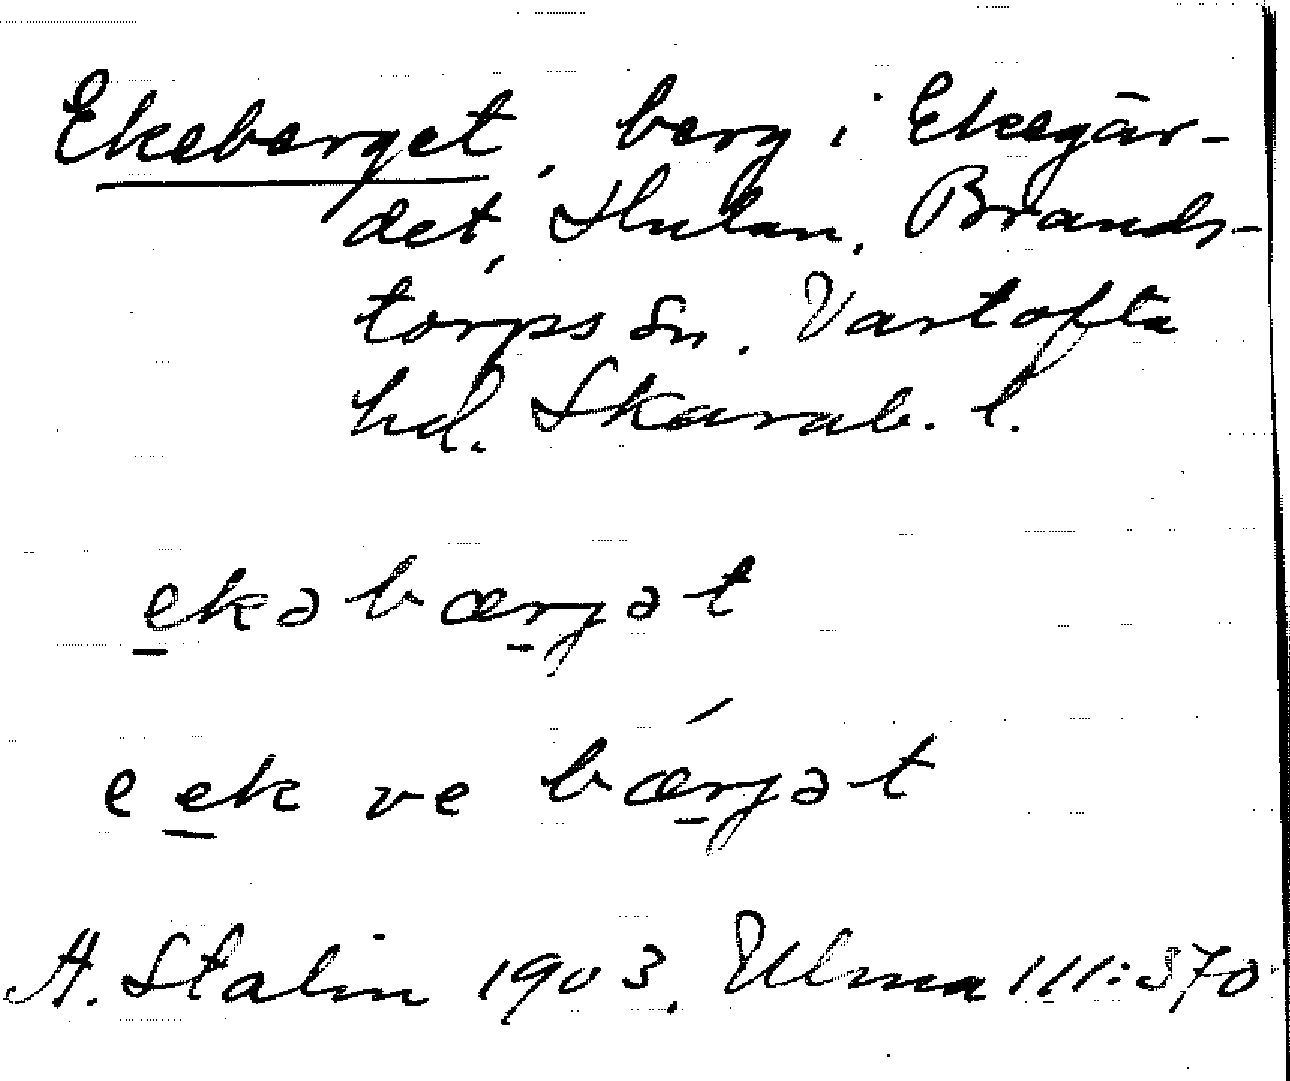 Ekeberget, berg i Ekegär-
det, Hulan, Brands-
torps sn. Vartofta
hd. Skarab. l.
ekəbærjət
e ek ve bǽrjət
A. Stalin 1903. Ulma 111:370